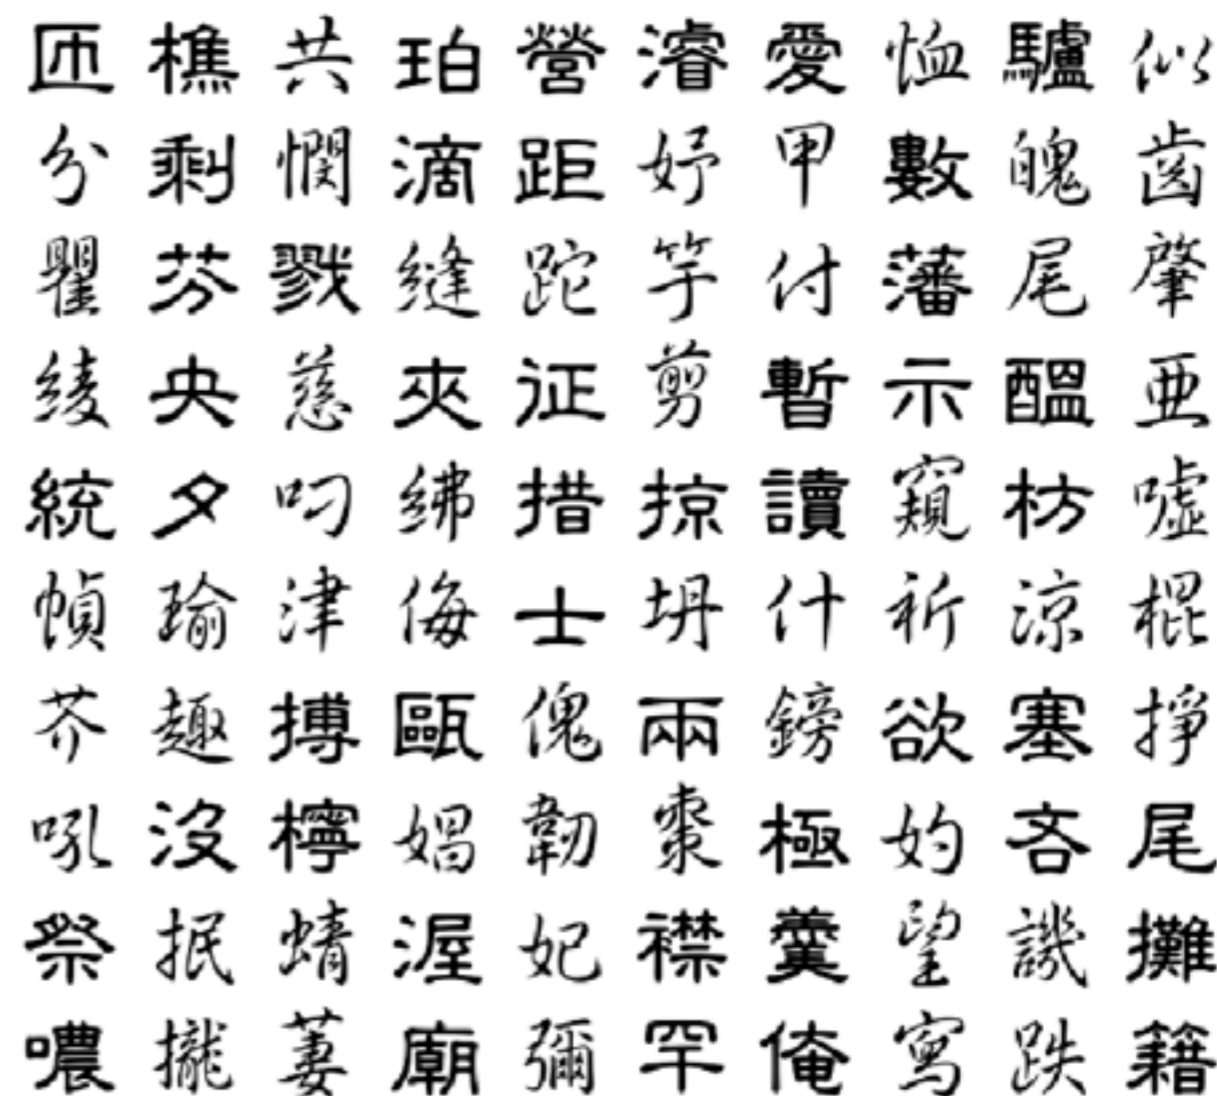 匝樵共珀營濬愛恤驢似
分剩憫滴距妤甲數醜齒
瞿芬戮縫跎竽付藩尾肇
綾央慈夾征剪暫示醞亜
統夕叼紼措掠讀窺枋噓
幀瑜津侮士坍什祈涼棍
芥趣搏甌傀兩鎊欲塞掙
吼沒檸娼韌棗極妁吝尾
祭抿蜻渥妃襟羹望譏攤
噥攏萋廟彌罕俺寫跌籍